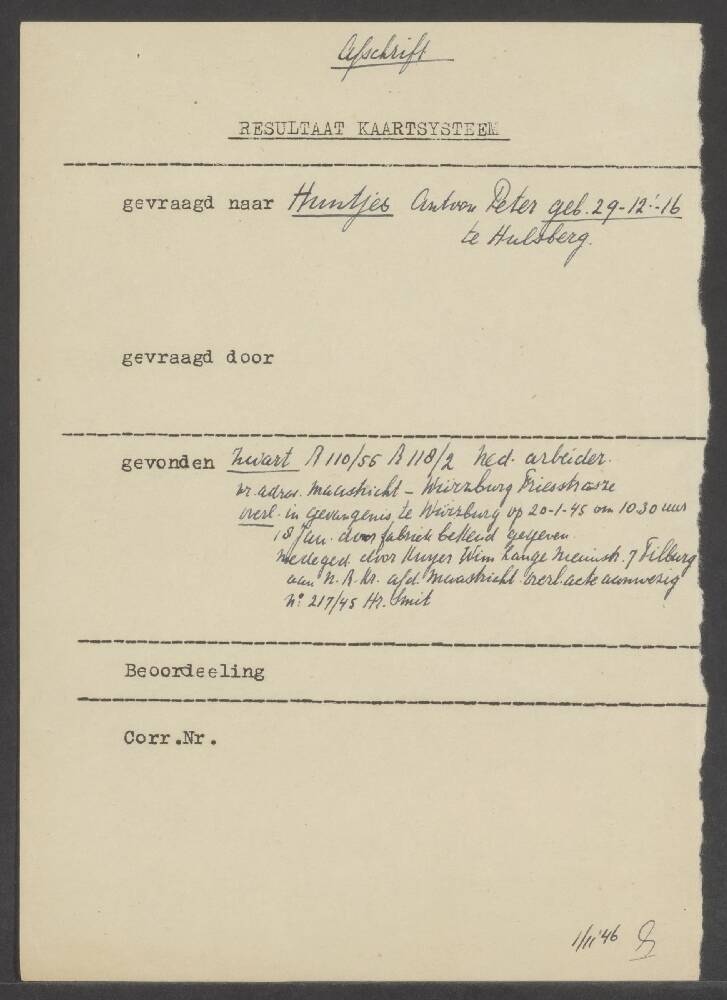 Afschrift
RESULTAAT KAARTSYSTEEM
gevraagd naar Huntjes Antoon Peter geb. 29-12-'16
te Hulsberg.
gevraagd door
gevonden zwart A 110/56 A 118/2 Ned. arbeider.
vr. adres. Maastricht - Würzburg Friesstrasze
overl. in gevangenis te Würzburg op 20-1-45 om 10.30 uur
18 Jan. door fabriek bekend gegeven.
medeged. door Wim Lange Nieuwstr. 7 Tilburg
aan N.R.Kr. afd. Maastricht. overl. acte aanwezig
No 217/45 Hr. Smit
Beoordeeling
Corr.Nr.
1/11'46